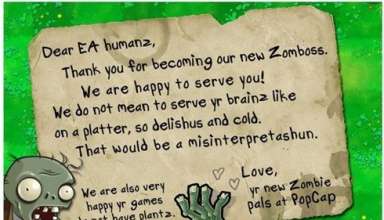 Dear EA humanz,
Thank you for becoming our new Zomboss.
We are happy to serve you!
We do not mean to serve yr brainz like
on a platter, so delishus and cold.
That would be a misinterpretashun.
We are also very
happy yr games
not have plantz.
Love,
yr new Zombie
pals at PopCap